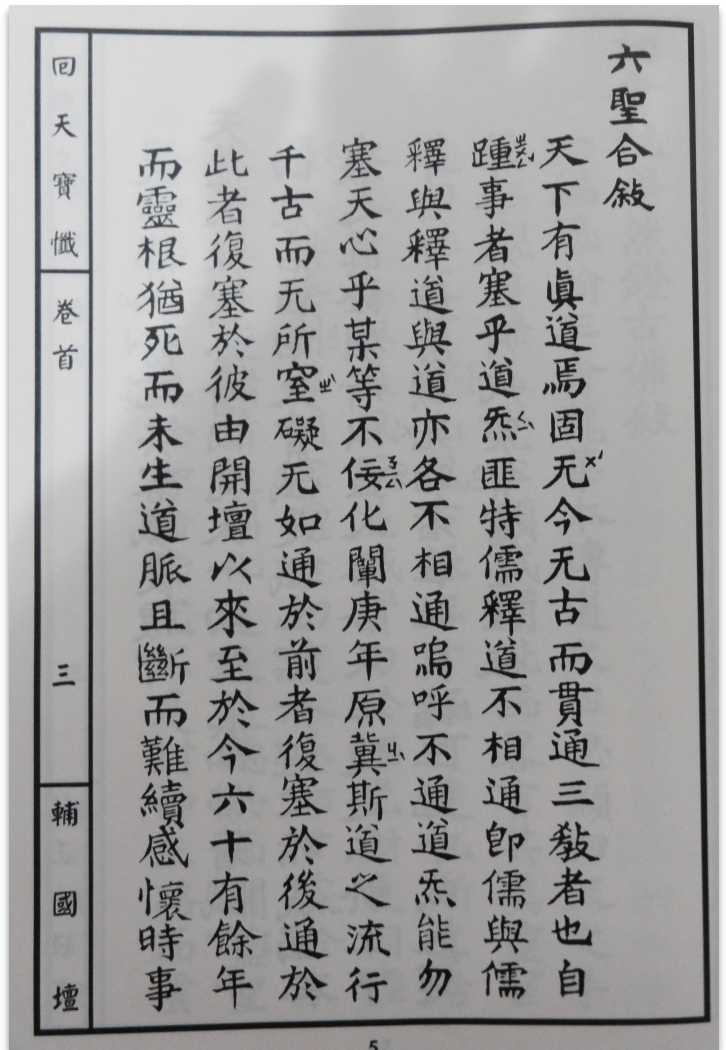 六聖合敍
天下有眞道焉固无今无古而貫通三敎者也自
踵事者塞乎道炁匪特儒釋道不相通卽儒與儒
釋與釋道與道亦各不相通嗚呼不通道炁能勿
塞天心乎某等不佞化闡庚年原冀斯道之流行
千古而无所窒礙无如通於前者復塞於後通於
此者復塞於彼由開壇以來至於今六十有餘年
而靈根猶死而未生道脈且斷而難續感懷時事
回天寶懺
卷首
三
輔國壇
5